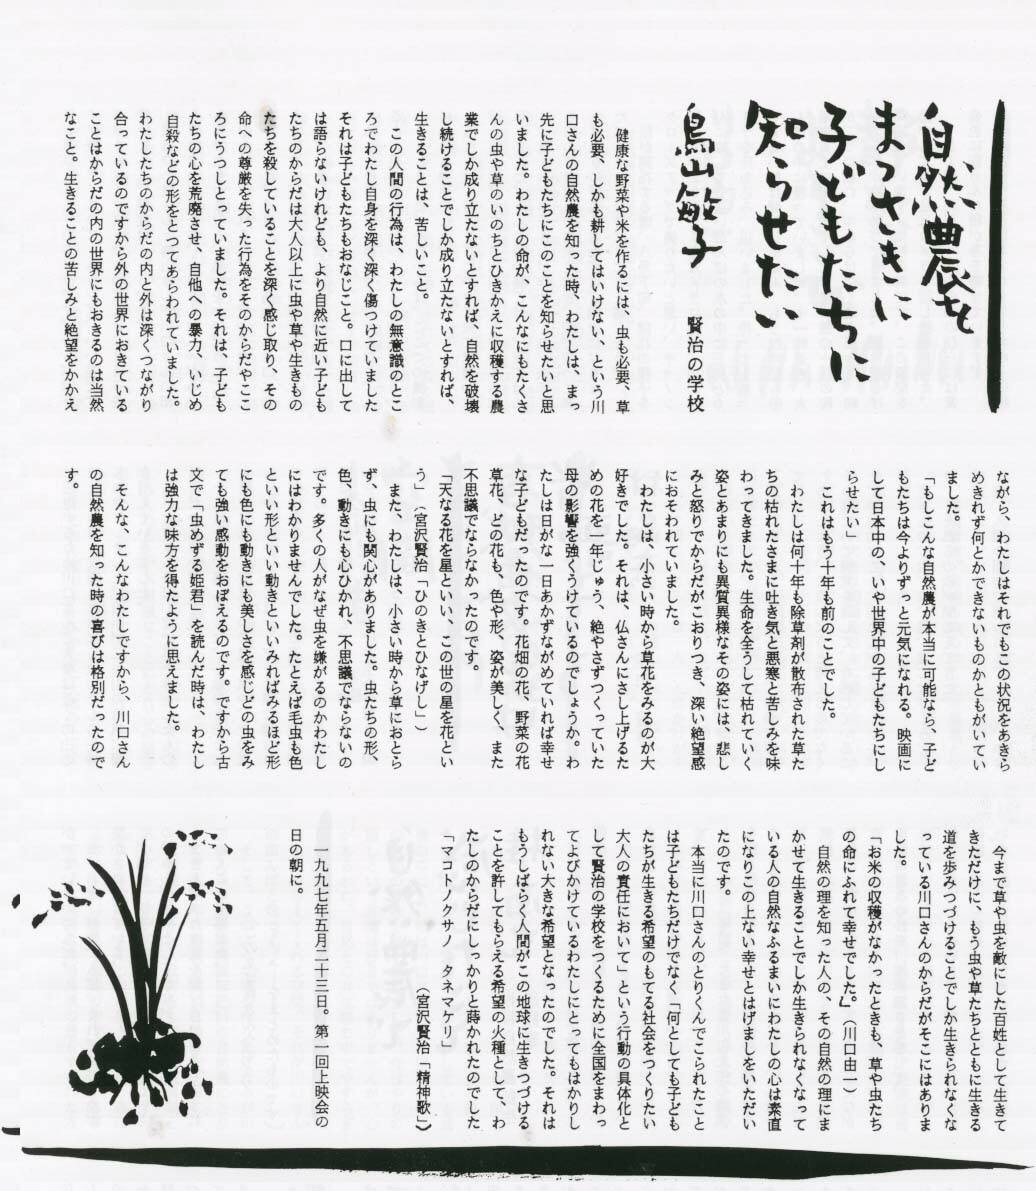 自然農を
まっさきに
子どもたちに
知らせたい
鳥山敏子
賢治の学校
健康な野菜や米を作るには、虫も必要、草
も必要、しかも耕してはいけない、という川
口さんの自然農を知った時、わたしは、まっ
先に子どもたちにこのことを知らせたいと思
いました。わたしの命が、こんなにもたくさ
んの虫や草のいのちとひきかえに収穫する農
業でしか成り立たないとすれば、自然を破壊
し続けることでしか成り立たないとすれば、
生きることは、苦しいこと。
この人間の行為は、わたしの無意識のとこ
ろでわたし自身を深く深く傷つけていました
それは子どもたちもおなじこと。口に出して
は語らないけれども、より自然に近い子ども
たちのからだは大人以上に虫や草や生きもの
たちを殺していることを深く感じ取り、その
命への尊厳を失った行為をそのからだやここ
ろにうつしとっていました。それは、子ども
たちの心を荒廃させ、自他への暴力、いじめ
自殺などの形をとってあらわれていました。
わたしたちのからだの内と外は深くつながり
合っているのですから外の世界におきている
ことはからだの内の世界にもおきるのは当然
なこと。生きることの苦しみと絶望をかかえ
ながら、わたしはそれでもこの状況をあきら
めきれず何とかできないものかともがいてい
ました。
「もしこんな自然農が本当に可能なら、子ど
もたちは今よりずっと元気になれる。映画に
して日本中の、いや世界中の子どもたちにし
らせたい」
これはもう十年も前のことでした。
わたしは何十年も除草剤が散布された草た
ちの枯れたさまに吐き気と悪寒と苦しみを味
わってきました。生命を全うして枯れていく
姿とあまりにも異質異様なその姿には、悲し
みと怒りでからだがこおりつき、深い絶望感
におそわれていました。
わたしは、小さい時から草花をみるのが大
好きでした。それは、仏さんにさし上げるた
めの花を一年じゅう、絶やさずつくっていた
母の影響を強くうけているのでしょうか。わ
たしは日がな一日あかずながめていれば幸せ
な子どもだったのです。花畑の花、野菜の花
草花、どの花も、色や形、姿が美しく、また
不思議でならなかったのです。
「天なる花を星といい、この世の星を花とい
う」（宮沢賢治「ひのきとひなげし」）
また、わたしは、小さい時から草におとら
ず、虫にも関心がありました。虫たちの形、
色、動きにも心ひかれ、不思議でならないの
です。多くの人がなぜ虫を嫌がるのかわたし
にはわかりませんでした。たとえば毛虫も色
といい形といい動きといいみればみるほど形
にも色にも動きにも美しさを感じどの虫をみ
ても強い感動をおぼえるのです。ですから古
文で「虫めずる姫君」を読んだ時は、わたし
は強力な味方を得たように思えました。
そんな、こんなわたしですから、川口さん
の自然農を知った時の喜びは格別だったので
す。
今まで草や虫を敵にした百姓として生きて
きただけに、もう虫や草たちとともに生きる
道を歩みつづけることでしか生きられなくな
っている川口さんのからだがそこにはありま
した。
「お米の収穫がなかったときも、草や虫たち
の命にふれて幸せでした。」（川口由一）
自然の理を知った人の、その自然の理にま
かせて生きることでしか生きられなくなって
いる人の自然なふるまいにわたしの心は素直
になりこの上ない幸せとはげましをいただい
たのです。
本当に川口さんのとりくんでこられたこと
は子どもたちだけでなく「何としても子ども
たちが生きる希望のもてる社会をつくりたい
大人の責任において」という行動の具体化と
して賢治の学校をつくるために全国をまわっ
てよびかけているわたしにとってもはかりし
れない大きな希望となったのでした。それは
もうしばらく人間がこの地球に生きつづける
ことを許してもらえる希望の火種として、わ
たしのからだにしっかりと蒔かれたのでした
「マコトノクサノ　タネマケリ」
（宮沢賢治「精神歌」）
一九九七年五月二十三日。第一回上映会の
日の朝に。